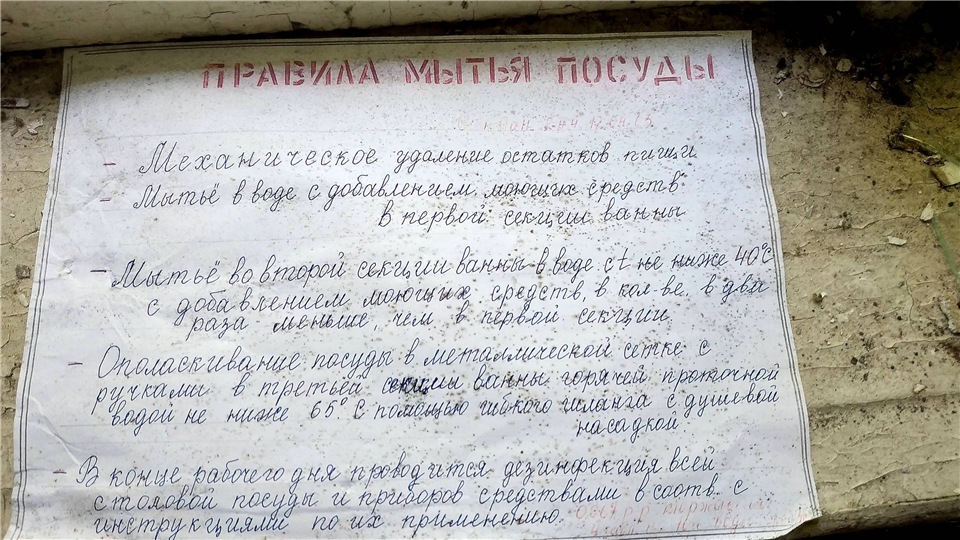 ПРАВИЛА МЫТЬЯ ПОСУДЫ
- Механическое удаление остатков пищи
- Мытьё в воде с добавлением моющих средств
в первой секции ванны
- Мытьё во второй секции ванны в воде с t не ниже 40°С
с добавлением моющих средств, в кол-ве в два
раза меньше, чем в первой секции
- Ополаскивание посуды в металлической сетке с
ручками в третьей секции ванны горячей проточной
водой не ниже 65° с помощью гибкого шланга с душевой
насадкой
- В конце рабочего дня проводится дезинфекция всей
столовой посуды и приборов средствами в соотв. с
инструкциями по их применению.